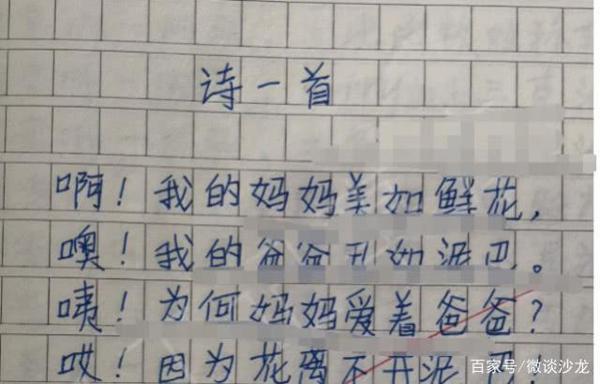 诗一首
啊！我的妈妈美如鲜花，
噢！我的爸爸丑如泥巴。
咦！为何妈妈爱着爸爸？
哎！因为花离不开泥！
百家号/微谈沙龙